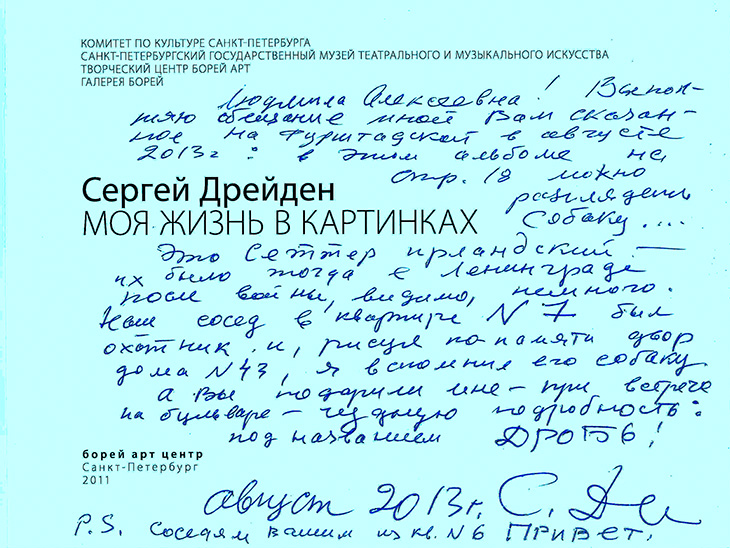 КОМИТЕТ ПО КУЛЬТУРЕ САНКТ-ПЕТЕРБУРГА
САНКТ-ПЕТЕРБУРГСКИЙ ГОСУДАРСТВЕННЫЙ МУЗЕЙ ТЕАТРАЛЬНОГО И МУЗЫКАЛЬНОГО ИСКУССТВА
ТВОРЧЕСКИЙ ЦЕНТР БОРЕЙ АРТ
ГАЛЕРЕЯ БОРЕЙ
Людмила Алексеевна! Выпол-
няю обещание мной Вам сказан-
ное на Фурштадской в августе
2013 г: в этом альбоме на
стр. 18 можно
разглядеть
собаку....
Сергей Дрейден
МОЯ ЖИЗНЬ В КАРТИНКАХ
Это Сеттер ирландский —
их было тогда в Ленинграде
после войны, видимо, немного.
Наш сосед в квартире N 7 был
охотник и, рисуя по памяти двор
дома N 43, я вспомнил его собаку
а Вы подарили мне – при встрече
на бульваре – чудную подробность:
под названием ДРОТЬ!
борей арт центр
Санкт-Петербург
2011
август 2013 г. С. Д
P.S. соседям вашим из кв. N 6 ПРИВЕТ!